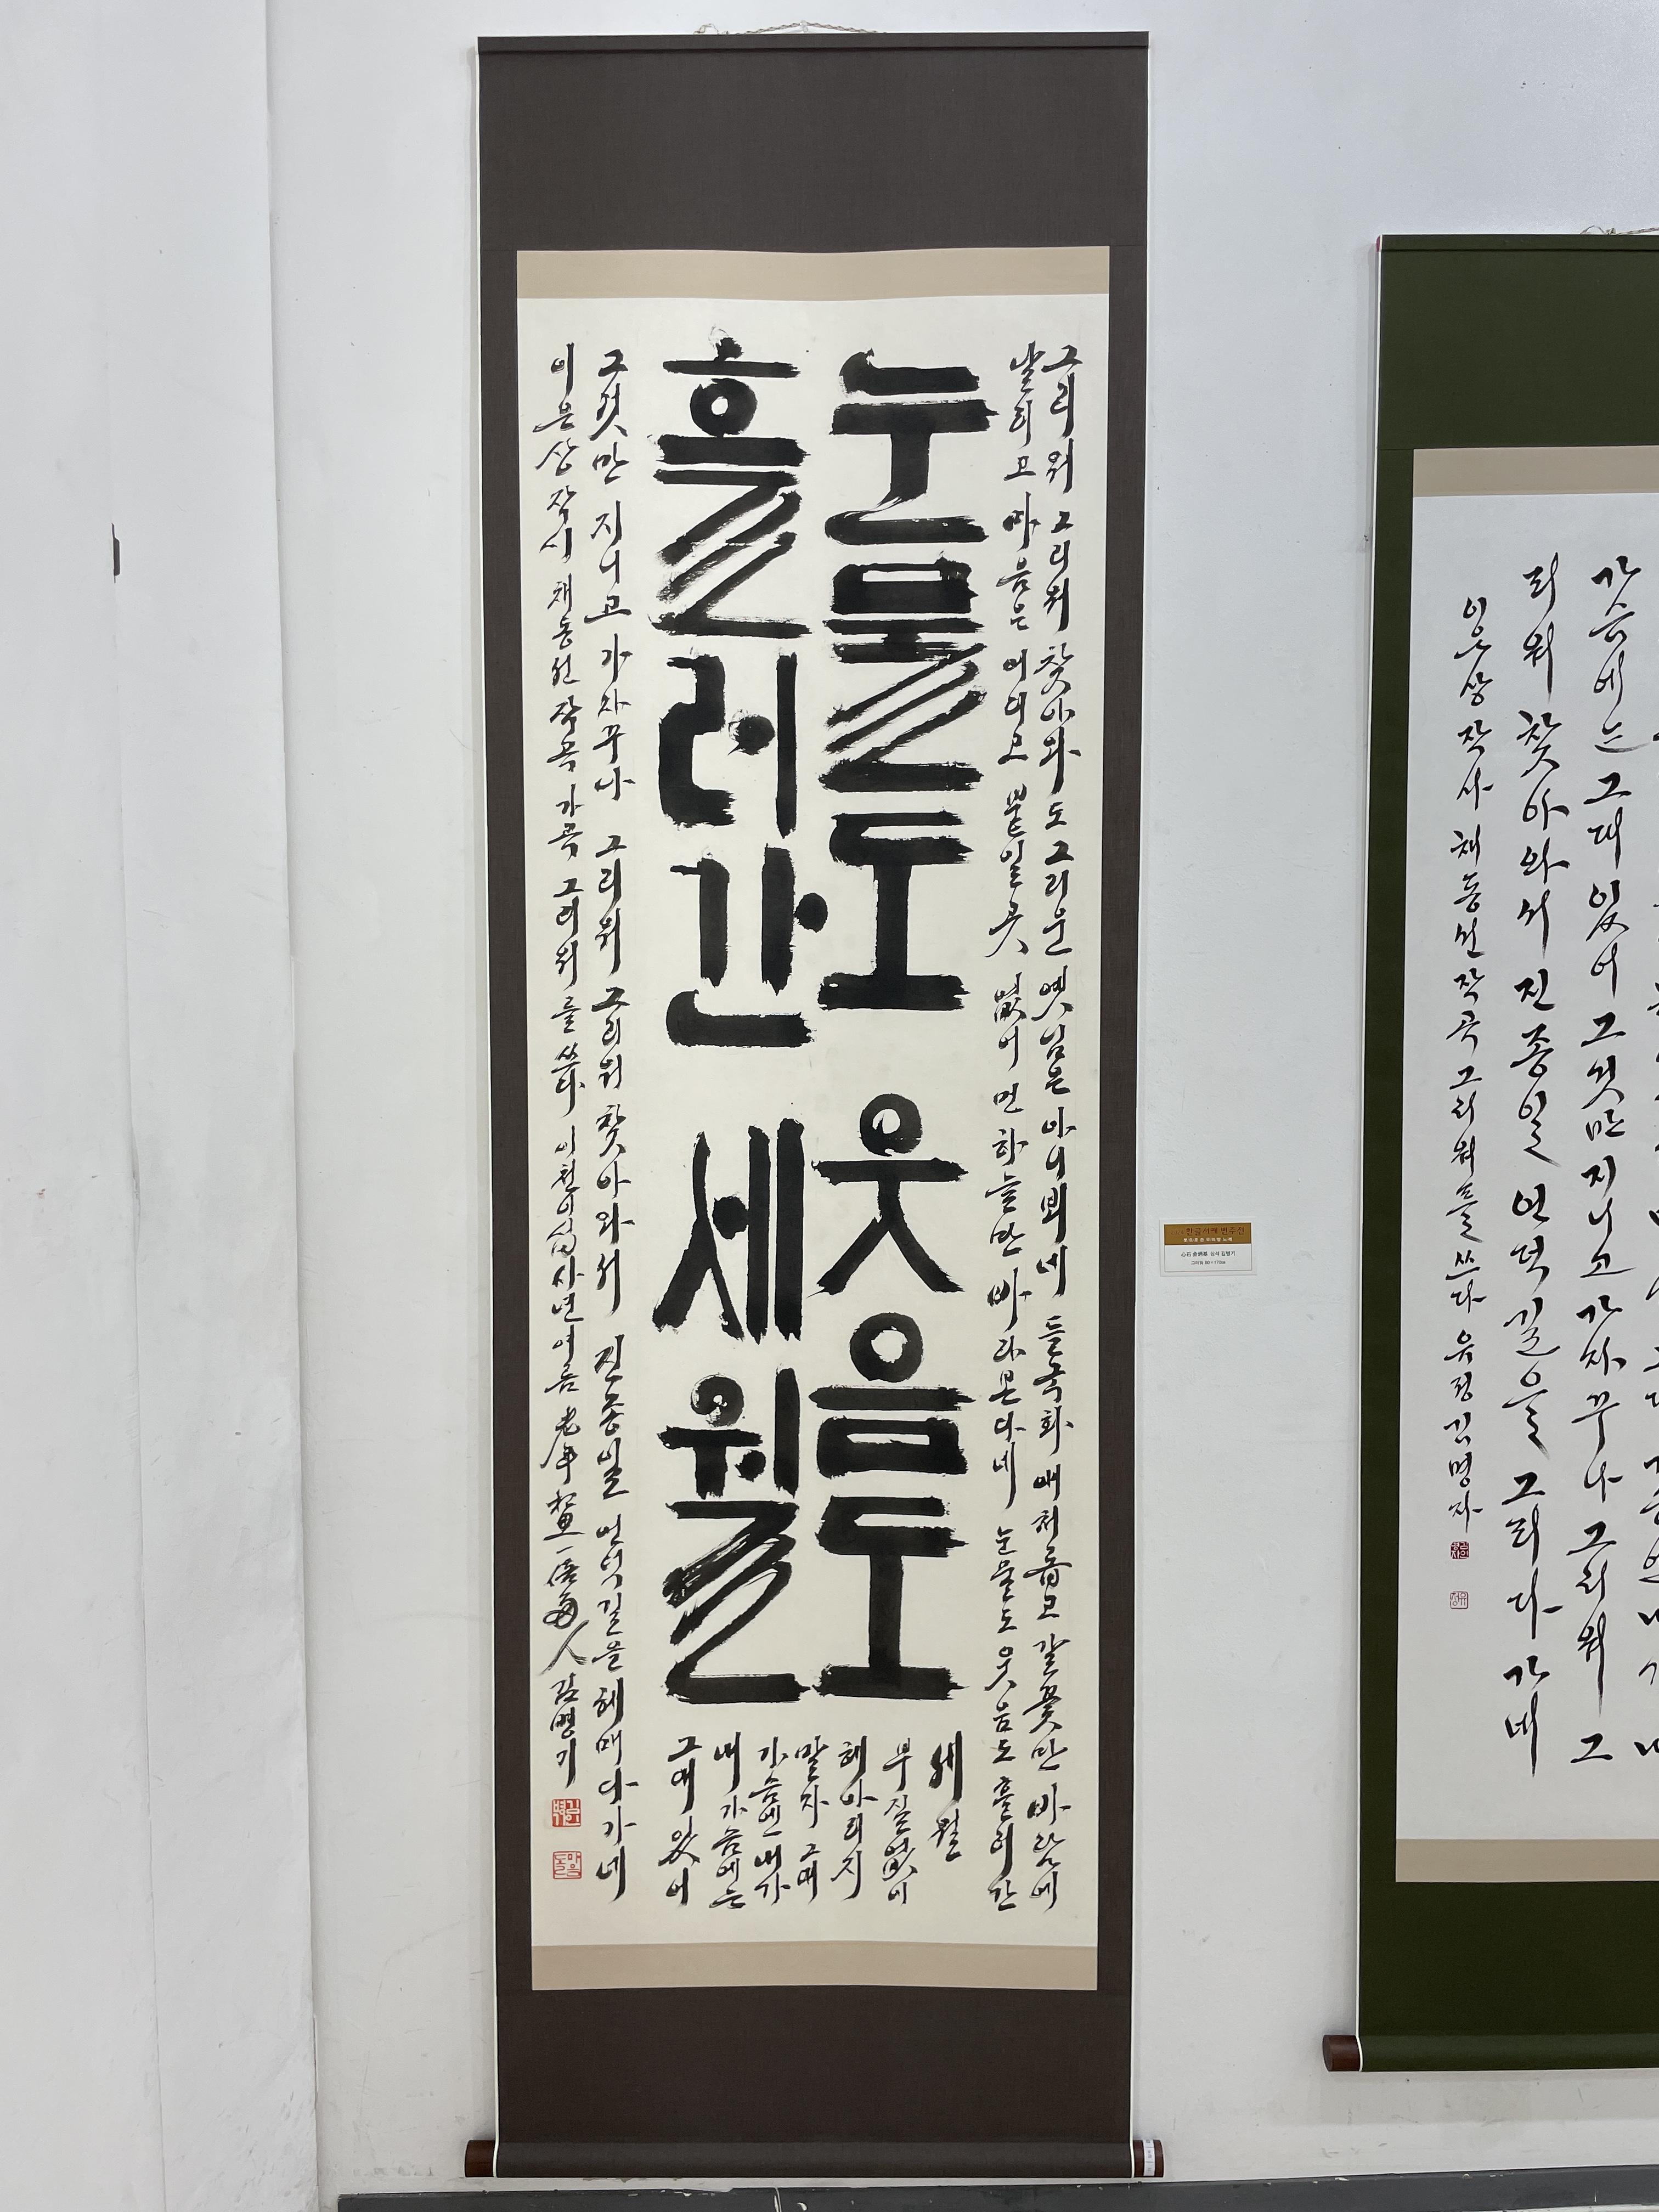 그리워 그리워 찾아와도 그리운 옛 임은 아니뵈네 들국화 애처롭고 갈꽃만 바람에
날리고 마음은 어디고 붙일 곳 없어 먼 하늘만 바라본다네 눈물도 웃음도 흘러간
눈물도 웃음도
흘러간 세월
세월
부질없이
헤아리지
말자 그대
가슴엔 내가
내 가슴에는
그대 있어
그것만 지니고 가자꾸나 그리워 그리워 찾아와서 진종일 언덕길을 헤매다 가네
이은상 작시 채동선 작곡 가곡 그리워를 쓰다 이천이십사년 여름 老年 一 人 김병기
한글서예 변주전
心石 金炳基 심석 김병기
가슴에는 그대 있어 그것만 지니고 가자꾸나 그리워 그
리워 찾아와서 진종일 언덕길을 그리다 가네
이은상 작사 채동선 작곡 그리워를 쓰다 유정 김명자